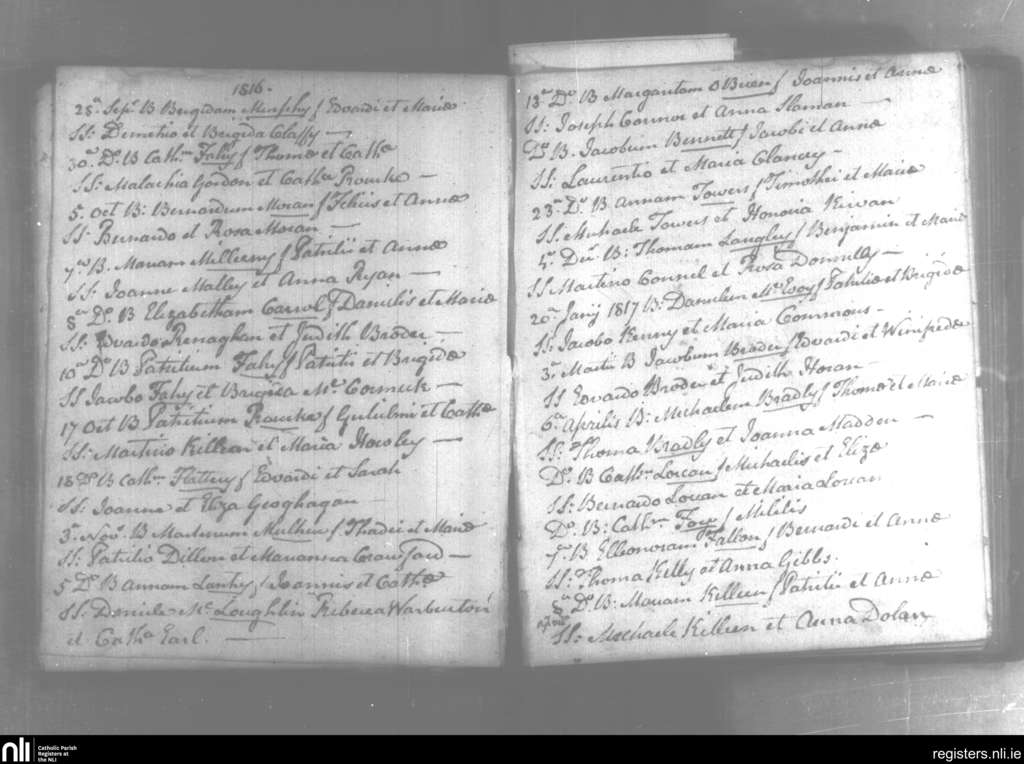 1816.
28.a Sep.r B Brigidam Murphy f Edvardi et Maria
SS: Demetrio et Brigida Claffy —
30.a D.o B Cath.m Fahy f Thoma et Catha
SS: Malachia Gordon et Catha Rourke —
5. Oct B: Bernardum Moran f Felicis et Anna
SS: Bernardo et Rosa Moran —
7.a B. Mariam f Patritii et Anna
SS: Joanne Malley et Anna Ryan —
8.a D.o B Elizabetham Carrol f Danielis et Maria
SS: Edvardo Renaghan et Judith Broder —
10.a D.o B Patritium Fahy f Patritii et Brigida
SS Jacobo Fahy et Brigida Mc Cormick —
17 Oct B Patritium Rourke f Gulielmi et Catha
SS: Martino Killean et Maria Howley —
18 D.o B Cath.m Flattery f Edvardi et Sarah
SS: Joanne et Eliza Geoghagan —
3.a Nov. B Martinum f Thadei et Maria
SS: Patritio Dillon et Mariana Crawford —
5 D.o B Annam Lantry f Joannis et Catha
SS: Daniele Mc Loughlin Rebecca Warburton
et Catha Earl. —
13.a D.o B Margaritam O Brien f Joannis et Anna
SS: Joseph Connor et Anna Slaman —
D.o B. Jacobum Bennett f Jacobi et Anna
SS: Laurentio et Maria Clancy —
23.a D.o B Annam Towers f Timothei et Maria
SS. Michaele Towers et Honoria Kirwan
4.a Dec.r B: Thomam Langley f Benjamin et Maria
SS Martino Connel et Rosa Donnelly —
20.a Janij 1817 B: Danielem Mc Evoy f Patritii et Brigida
SS: Jacobo Kenny et Maria Commons —
3.a Martii B Jacobum Broder f Edvardi et Winifreda
SS Edvardo Broder et Judith Horan
6.a Aprilis B: Michaelem Bradly f Thoma et Maria
SS: Thoma Bradly et Joanna Madden —
D.o B Cath.m Lorcan f Michaelis et Eliza
SS: Bernardo Lorcan et Maria Lorcan
D.o B: Cath.m Foxe f Militis
7.a B Elleonoram Fallon f Bernardi et Anna
SS: Thoma Kelly et Anna Gibbs.
8.a D.o B: Mariam Killeen f Patritii et Anna
April
SS: Michaele Killeen et Anna Dolan
nli
Catholic Parish
Registers at
the NLI
registers.nli.ie